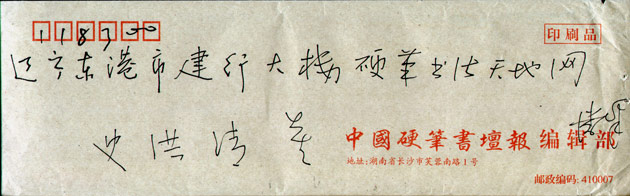 118300
印刷品
辽宁东港市建行大楼硬笔书法天地网
史洪清
中國硬筆書壇報 编辑部
地址:湖南省长沙市芙蓉南路1号
邮政编码: 410007